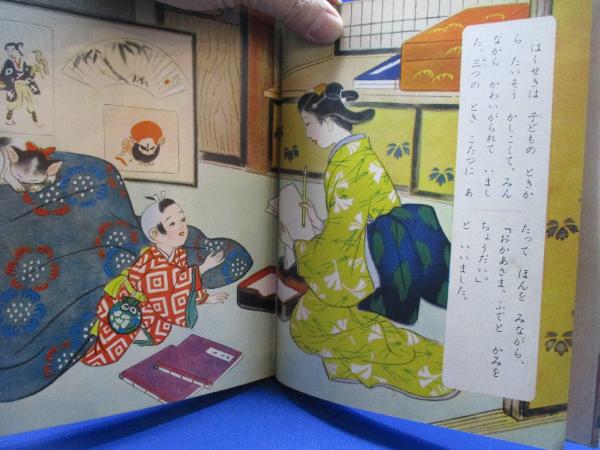 はくせきは 子どもの ときか
ら たいそう かしこくて、みん
なから かわいがられて いまし
た。三つの とき こたつに あ
たって ほんを みながら、
「おかあさま、ふでと かみを
ちょうだい」
と いいました。